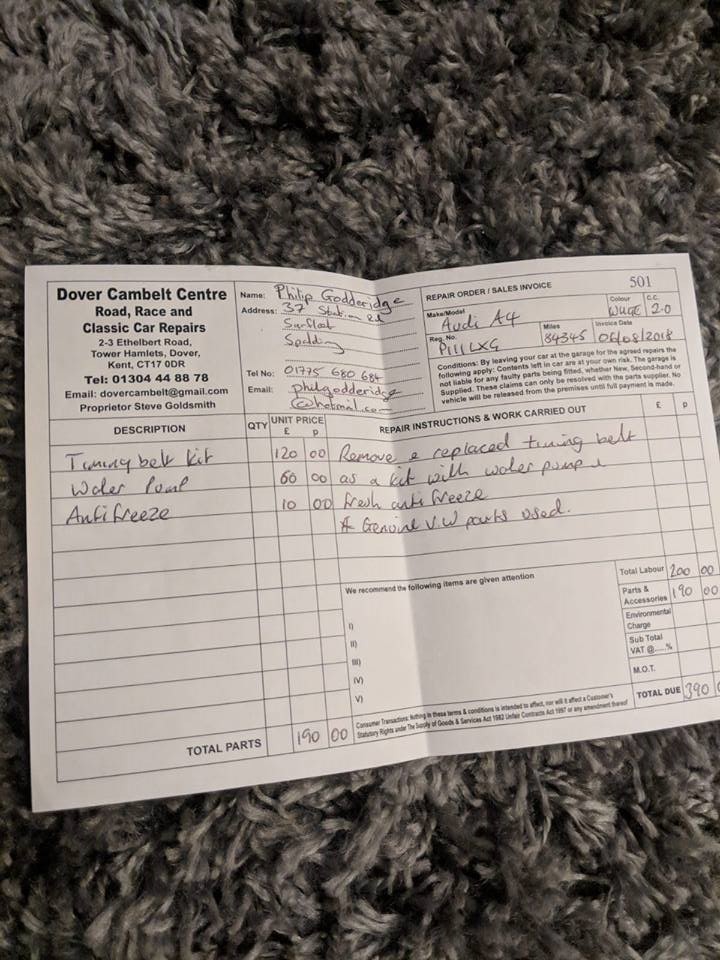 Dover Cambelt Centre
Road, Race and
Classic Car Repairs
2-3 Ethelbert Road,
Tower Hamlets, Dover,
Kent, CT17 0DR
Tel: 01304 44 88 78
Email: dovercambelt@gmail.com
Proprietor Steve Goldsmith
Name: Philip Godderidge
Address: 37 Station Rd
Surfleet
Spalding
Tel No: 01775 680 684
Email: philgodderidge
@hotmail.com
REPAIR ORDER / SALES INVOICE 501
Make/Model Audi A4
Colour
C.C. 2.0
Reg. No. P111LXG
Miles 84345
Invoice Date 06/08/2018
Conditions: By leaving your car at the garage for the agreed repairs the
following apply: Contents left in car are at your own risk. The garage is
not liable for any faulty parts being fitted, whether New, Second-hand or
Supplied. These claims can only be resolved with the parts supplier. No
vehicle will be released from the premises until full payment is made.
DESCRIPTION QTY UNIT PRICE £ p REPAIR INSTRUCTIONS & WORK CARRIED OUT £ p
Timing belt kit 120 00 Remove & replaced timing belt
Water Pump 60 00 as a kit with water pump &
Antifreeze 10 00 fresh antifreeze
* Genuine V.W parts used.
We recommend the following items are given attention
I)
II)
III)
IV)
V)
Total Labour 200 00
Parts & Accessories 190 00
Environmental Charge
Sub Total
VAT @.....%
M.O.T.
TOTAL DUE 390
TOTAL PARTS 190 00
Consumer Transactions: Nothing in these terms & conditions is intended to affect, nor will it affect a Customer's
Statutory Rights under The Supply of Goods & Services Act 1982 Unfair Contracts Act 1997 or any amendment thereof